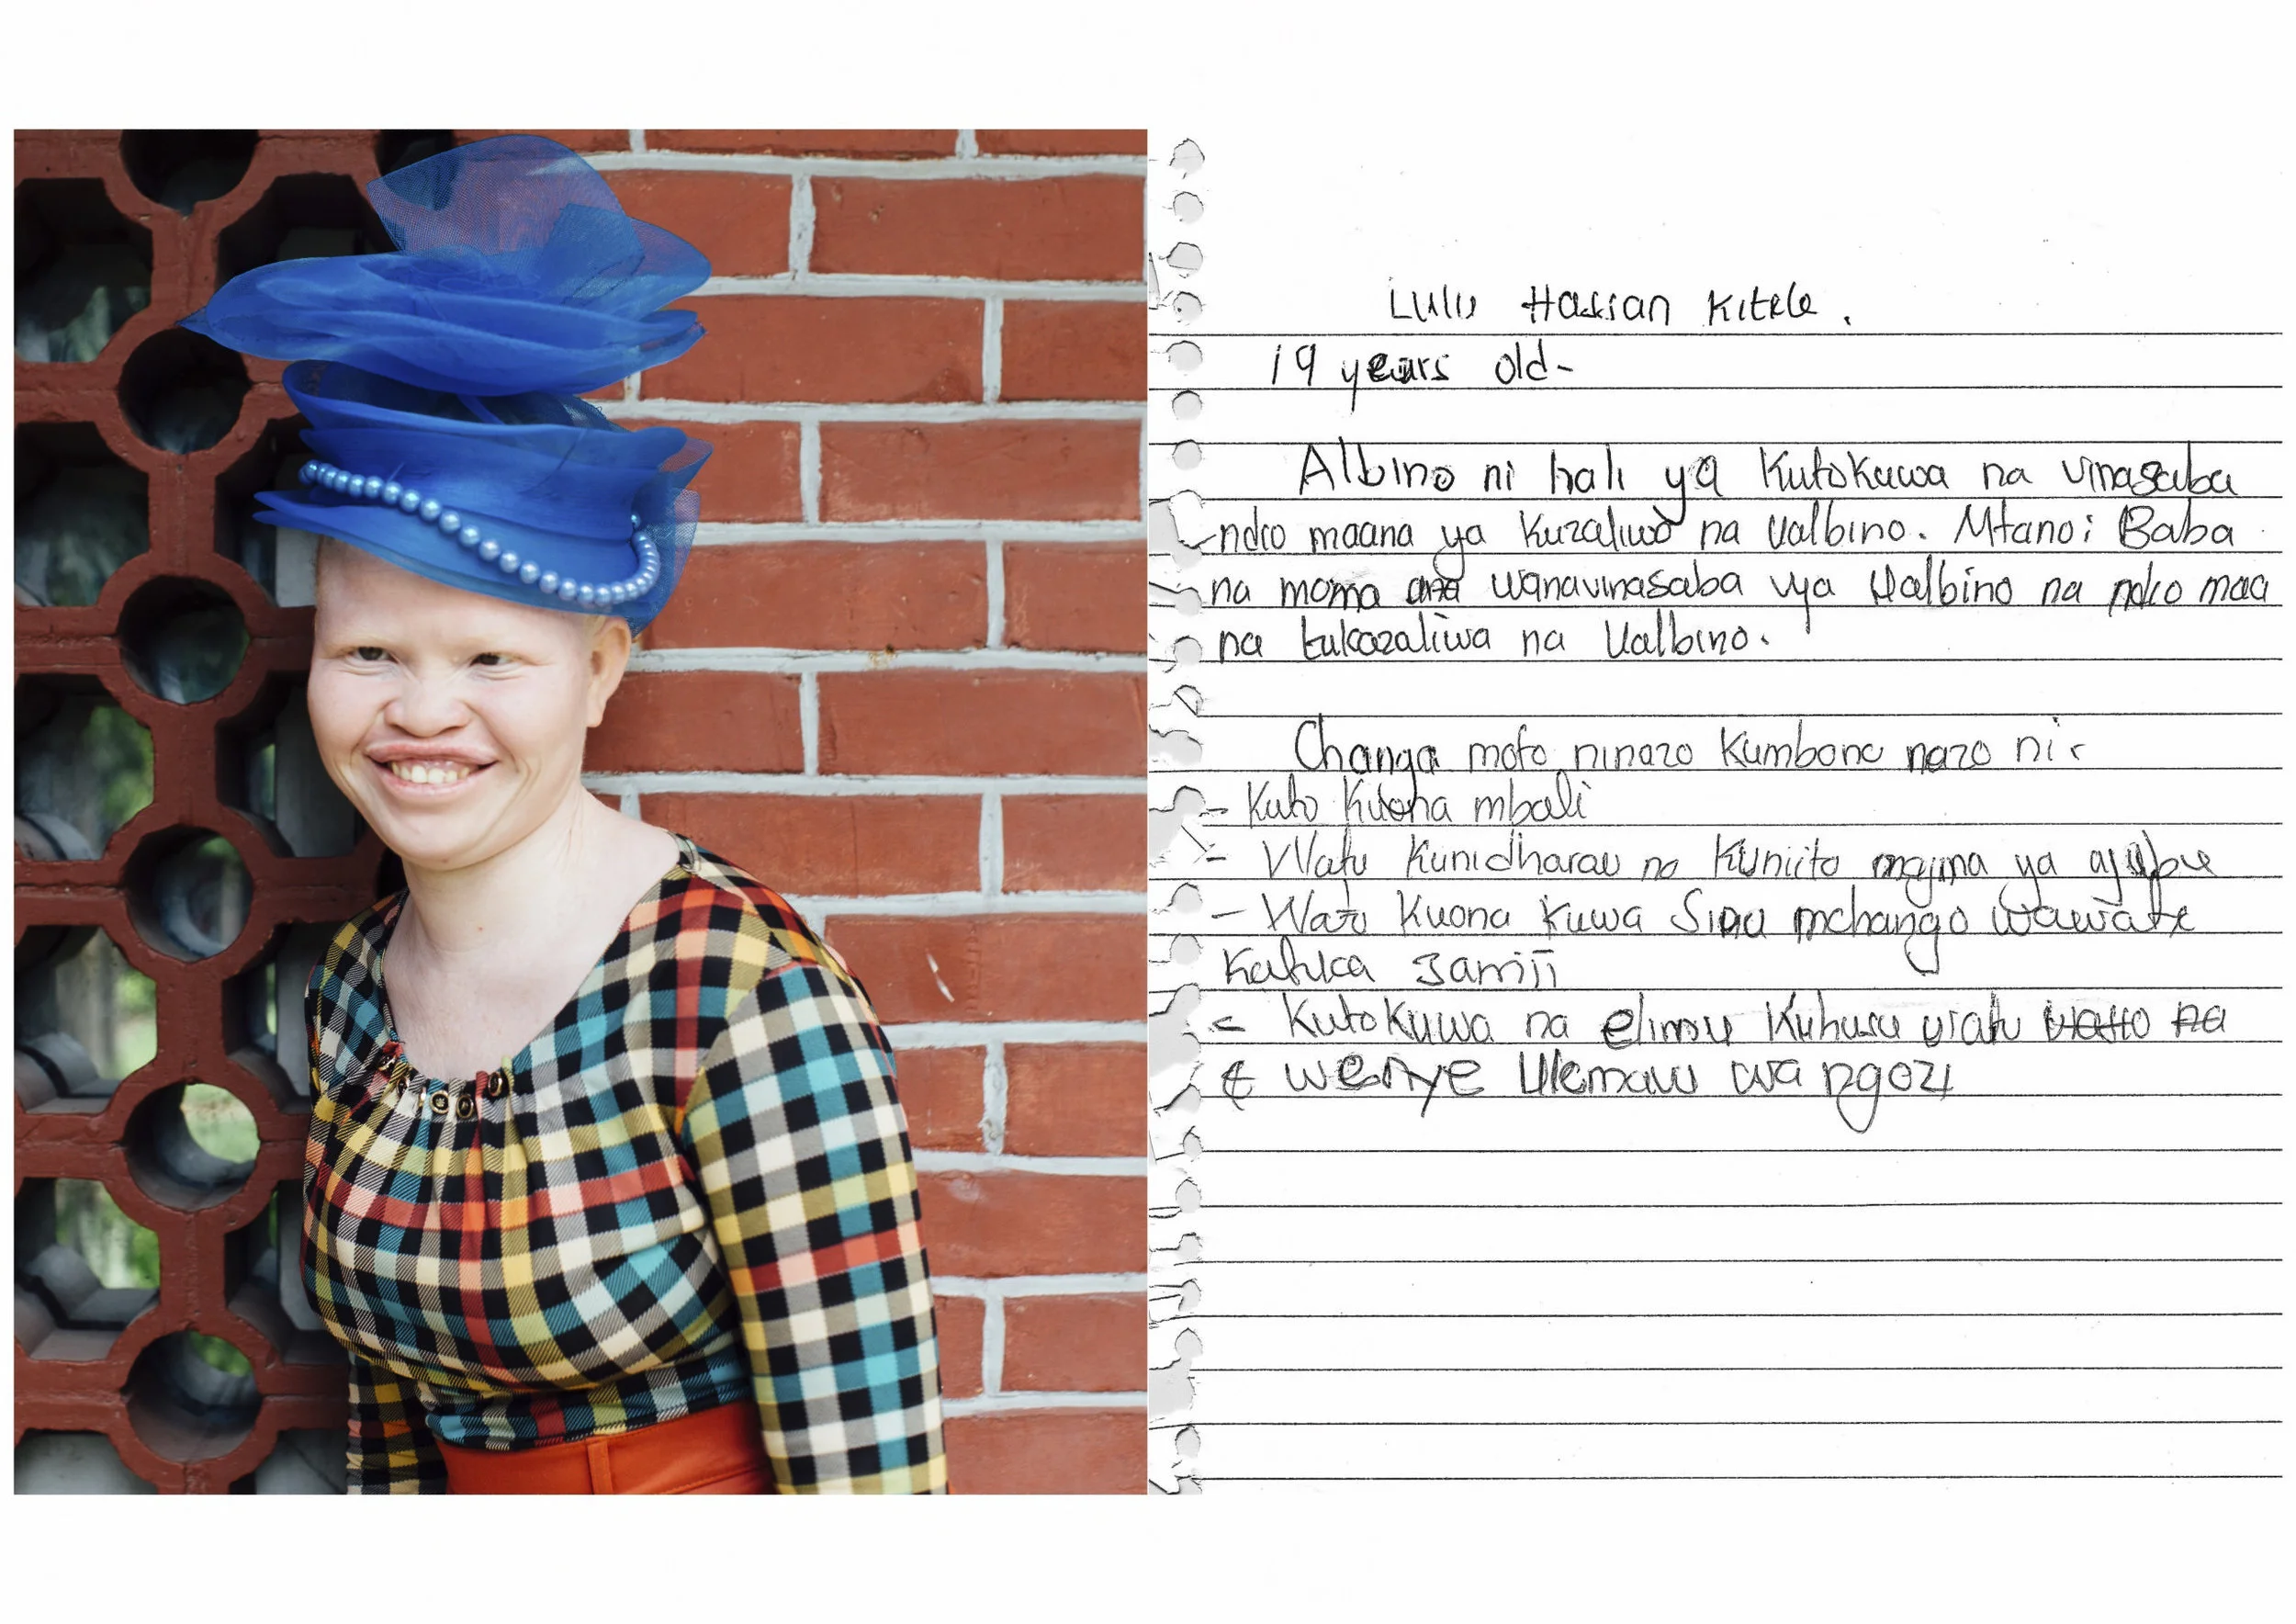 Lulu Hassan Kitele.
19 years old-
Albino ni hali ya Kutokuwa na vinasaba
ndio maana ya Kuzaliwa na Ualbino. Mfano: Baba
na mama wanavinasaba vya Ualbino na ndio maa
na tukazaliwa na Ualbino.
Changa moto ninazo Kumbana nazo ni:
- Kuto Kuona mbali
- Watu Kunidharau na Kuniita majina ya ajabu
- Watu Kuona Kuwa Sina mchango wawate
Katika Jamiji
- Kutokuwa na elimu Kuhusu watu
wenye Ulemavu wa ngozi